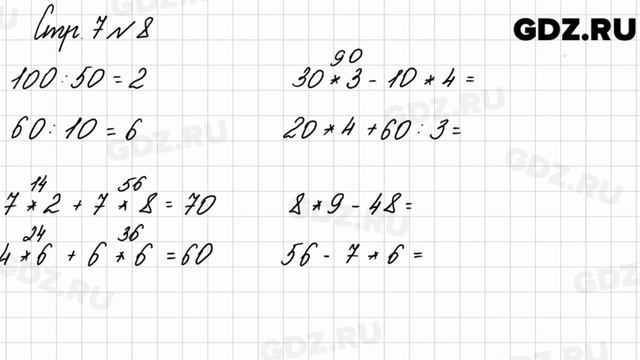 Стр. 7 № 8
GDZ.RU
100 : 50 = 2
60 : 10 = 6
14 56
7 * 2 + 7 * 8 = 70
24 36
4 * 6 + 6 * 6 = 60
90
30 * 3 - 10 * 4 =
20 * 4 + 60 : 3 =
8 * 9 - 48 =
56 - 7 * 6 =
GDZ.RU
GDZ.RU
GDZ.RU
GDZ.RU
GDZ.RU
GDZ.RU
GDZ.RU